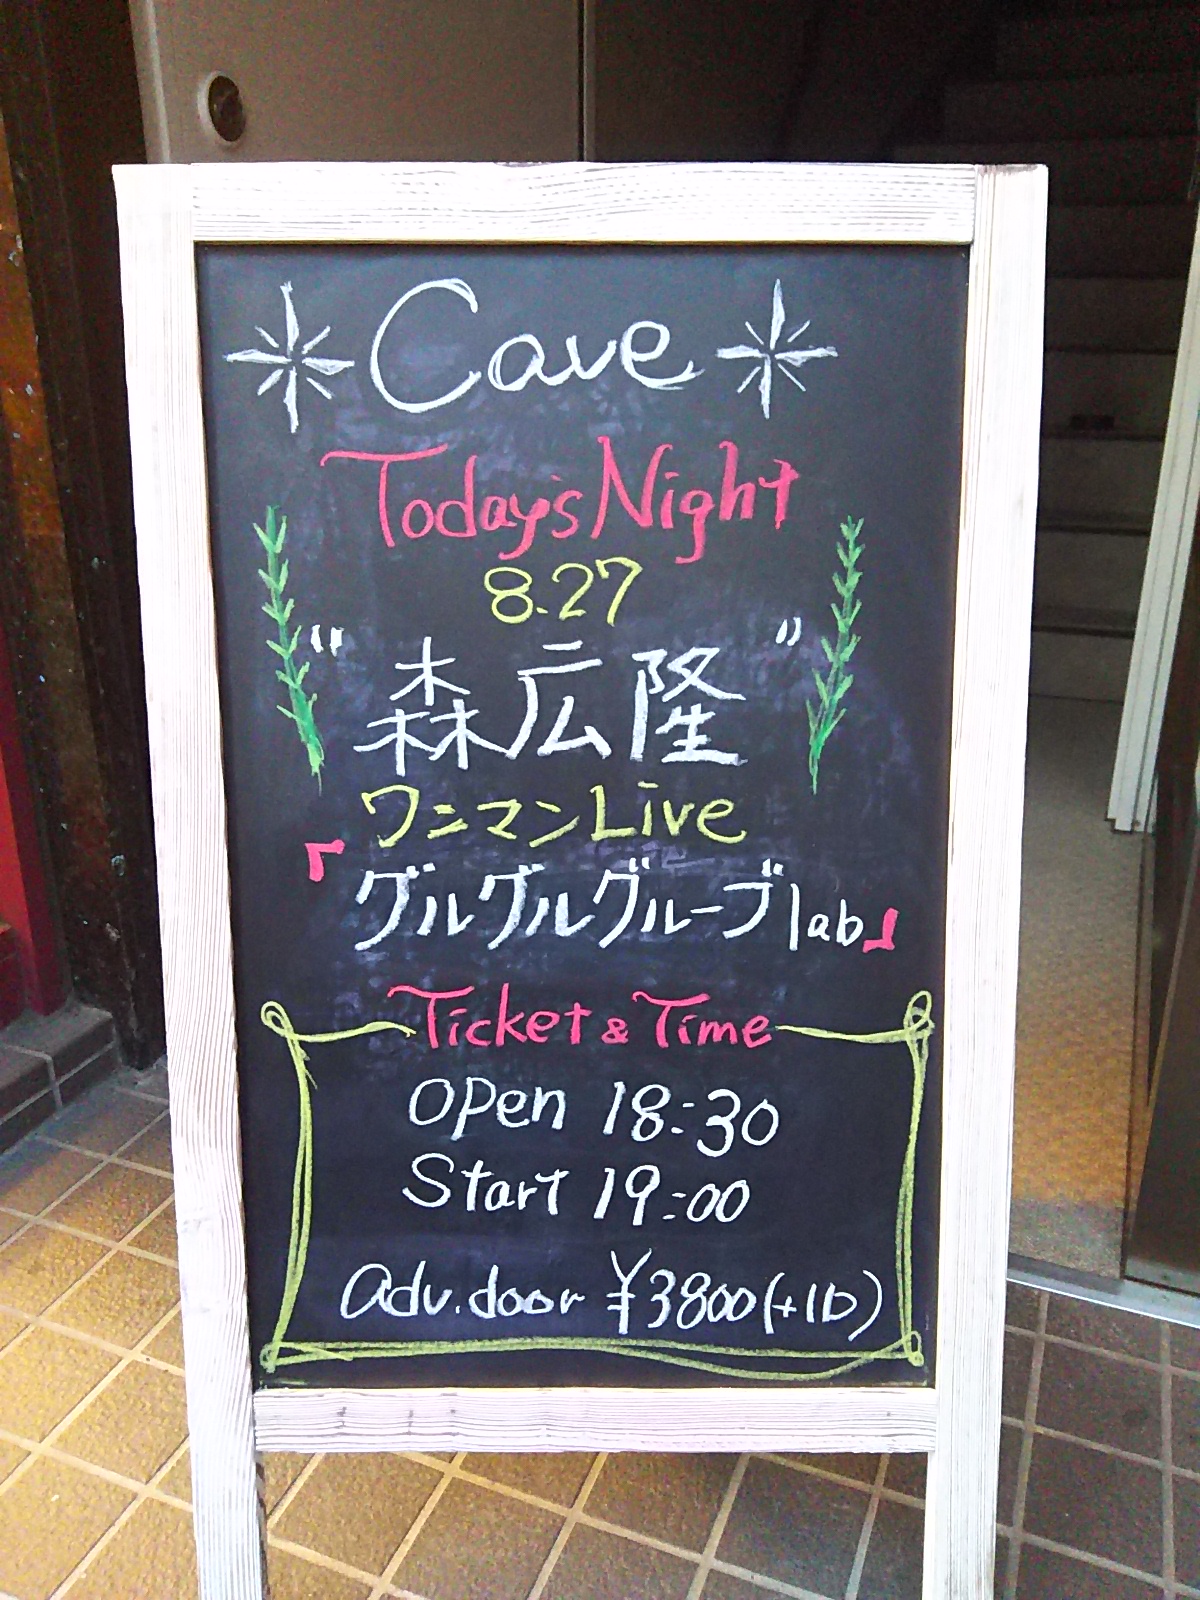 Cave
Today's Night
8.27
"森広隆"
ワンマンLive
『グルグルグルーブlab』
Ticket & Time
OPen 18:30
Start 19:00
adv.door ¥3800(+1D)